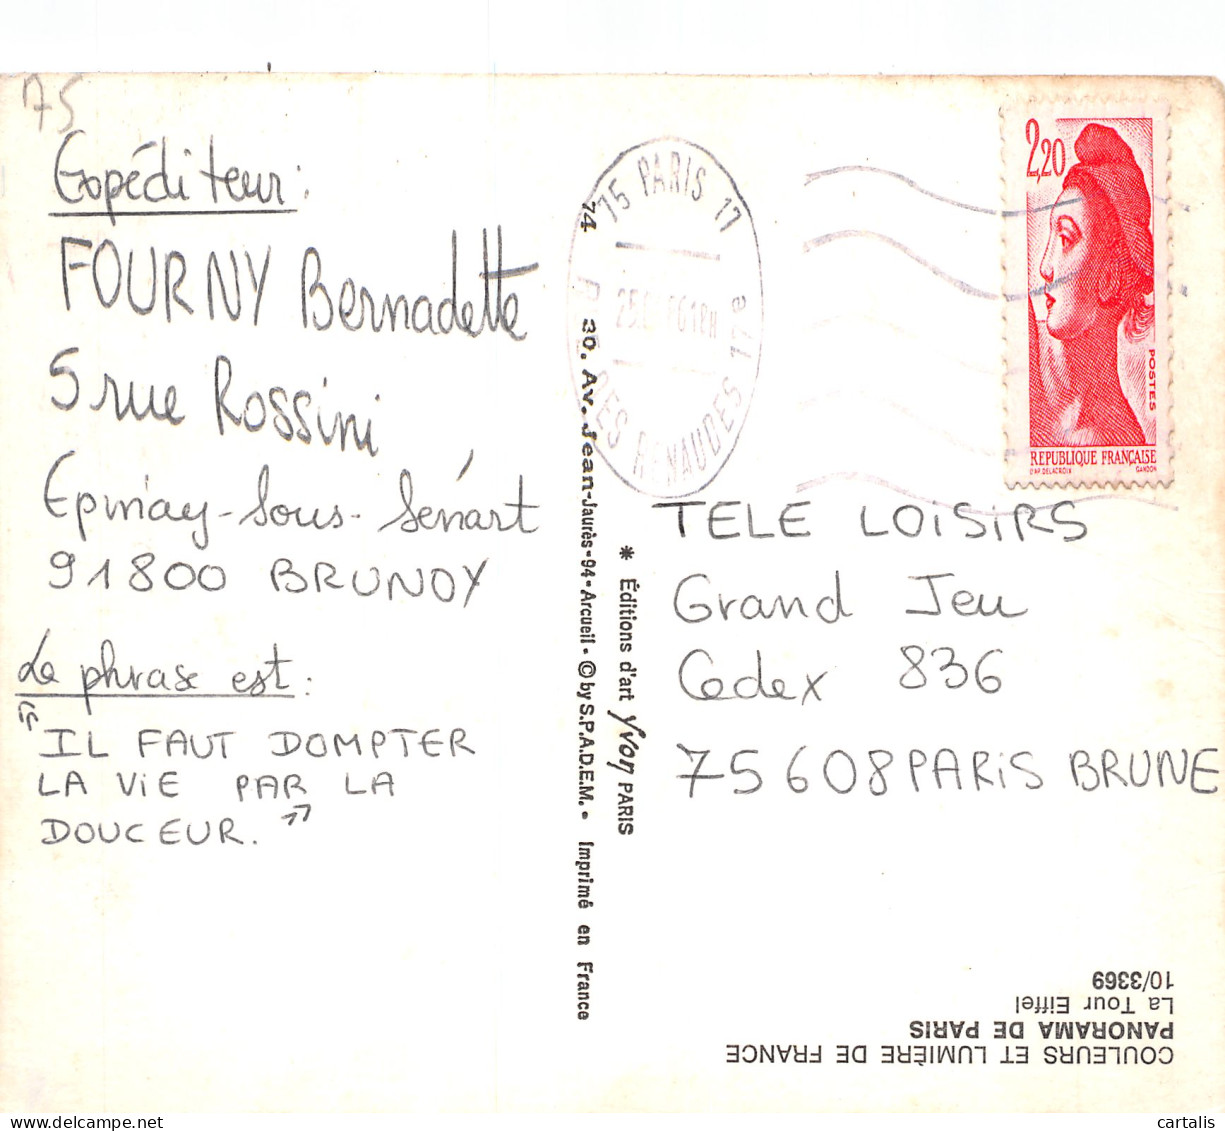 75
Expéditeur :
FOURNY Bernadette
5 rue Rossini
Epinay-Sous-Sénart
91800 BRUNOY
La phrase est :
" IL FAUT DOMPTER
LA VIE PAR LA
DOUCEUR. "
75 PARIS 17
R. DES RENAUDES 17e
2,20
POSTES
REPUBLIQUE FRANÇAISE
D'AP. DELACROIX GANDON
TELE LOISIRS
Grand Jeu
Cedex 836
75608 PARIS BRUNE
* Éditions d'art Yvon PARIS
30, Av. Jean-Jaurès-94-Arcueil - © by S.P.A.D.E.M. - Imprimé en France
74
COULEURS ET LUMIÈRE DE FRANCE
PANORAMA DE PARIS
La Tour Eiffel
10/3369
cartalis